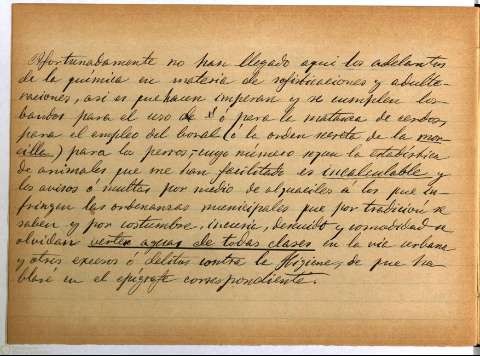 Afortunadamente no han llegado aqui los adelantos
de la química en materia de sofisticaciones y adulte-
raciones, asi es que hacen imperan y se cumplen los
bandos para el uso de ó para la matanza de cerdos,
para el empleo del boral (ó la orden secreta de la mor
cilla) para los perros,-cuyo número segun la estadística
de animales que me han facilitado es incalculable y
los avisos ó multas por medio de alguaciles á los que in-
fringen las ordenanzas municipales que por tradición se
saben y por costumbre, incuria, descuido y comodidad se
olvidan verter aguas de todas clases en la via urbana
y otros excesos ó delitos contra la Higiene, de que ha-
blaré en el epígrafe correspondiente.